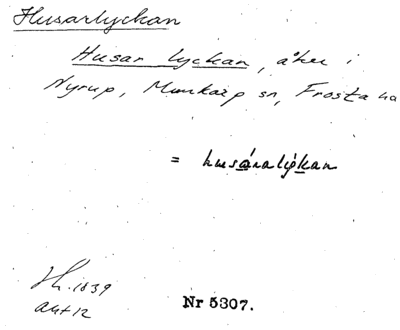 Husarlyckan
Husar lyckan, åker i
Nyrup, Munkarp sn, Frosta hd
= husáralýkan
1839
akt 12
Nr 5307.